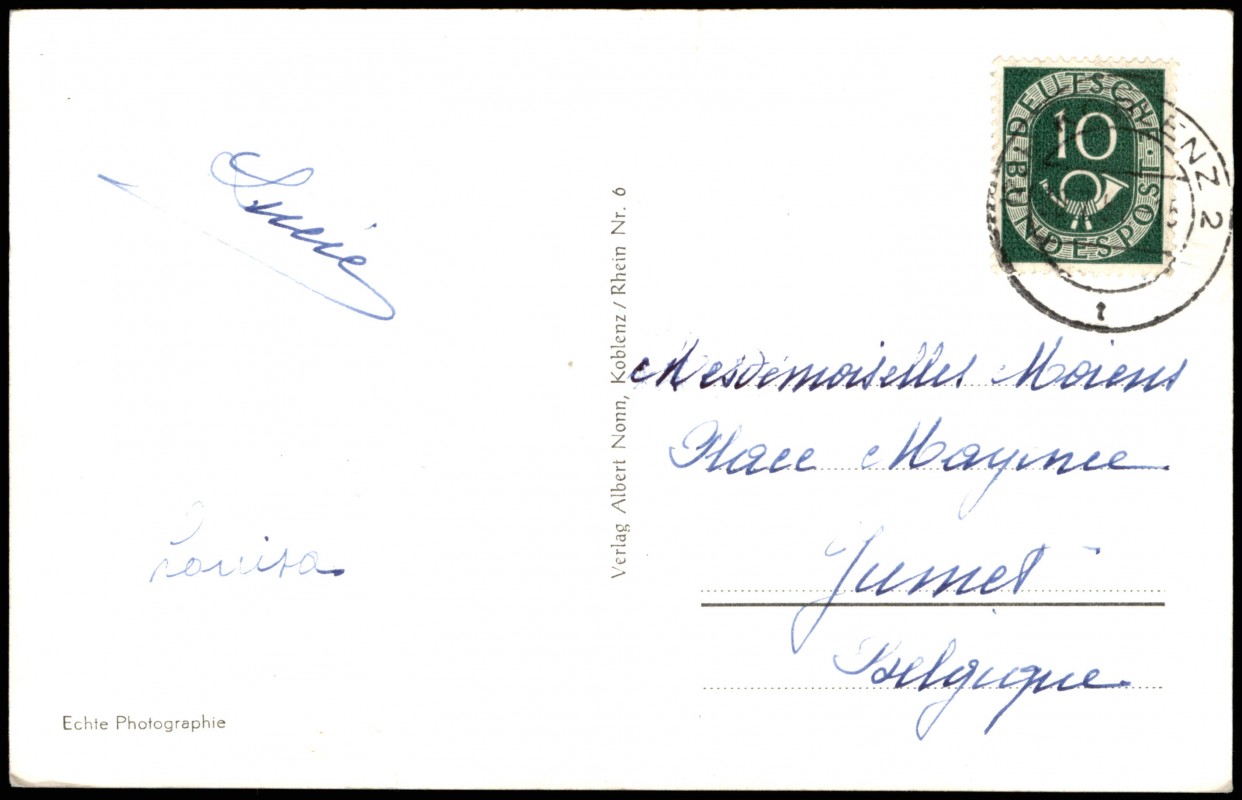 DEUTSCHE BUNDESPOST
10
KOBLENZ 2
t
Lucie
Louisa
Echte Photographie
Verlag Albert Nonn, Koblenz / Rhein Nr. 6
Mesdemoiselles Moiens
Place Mayence
Jumet
Belgique